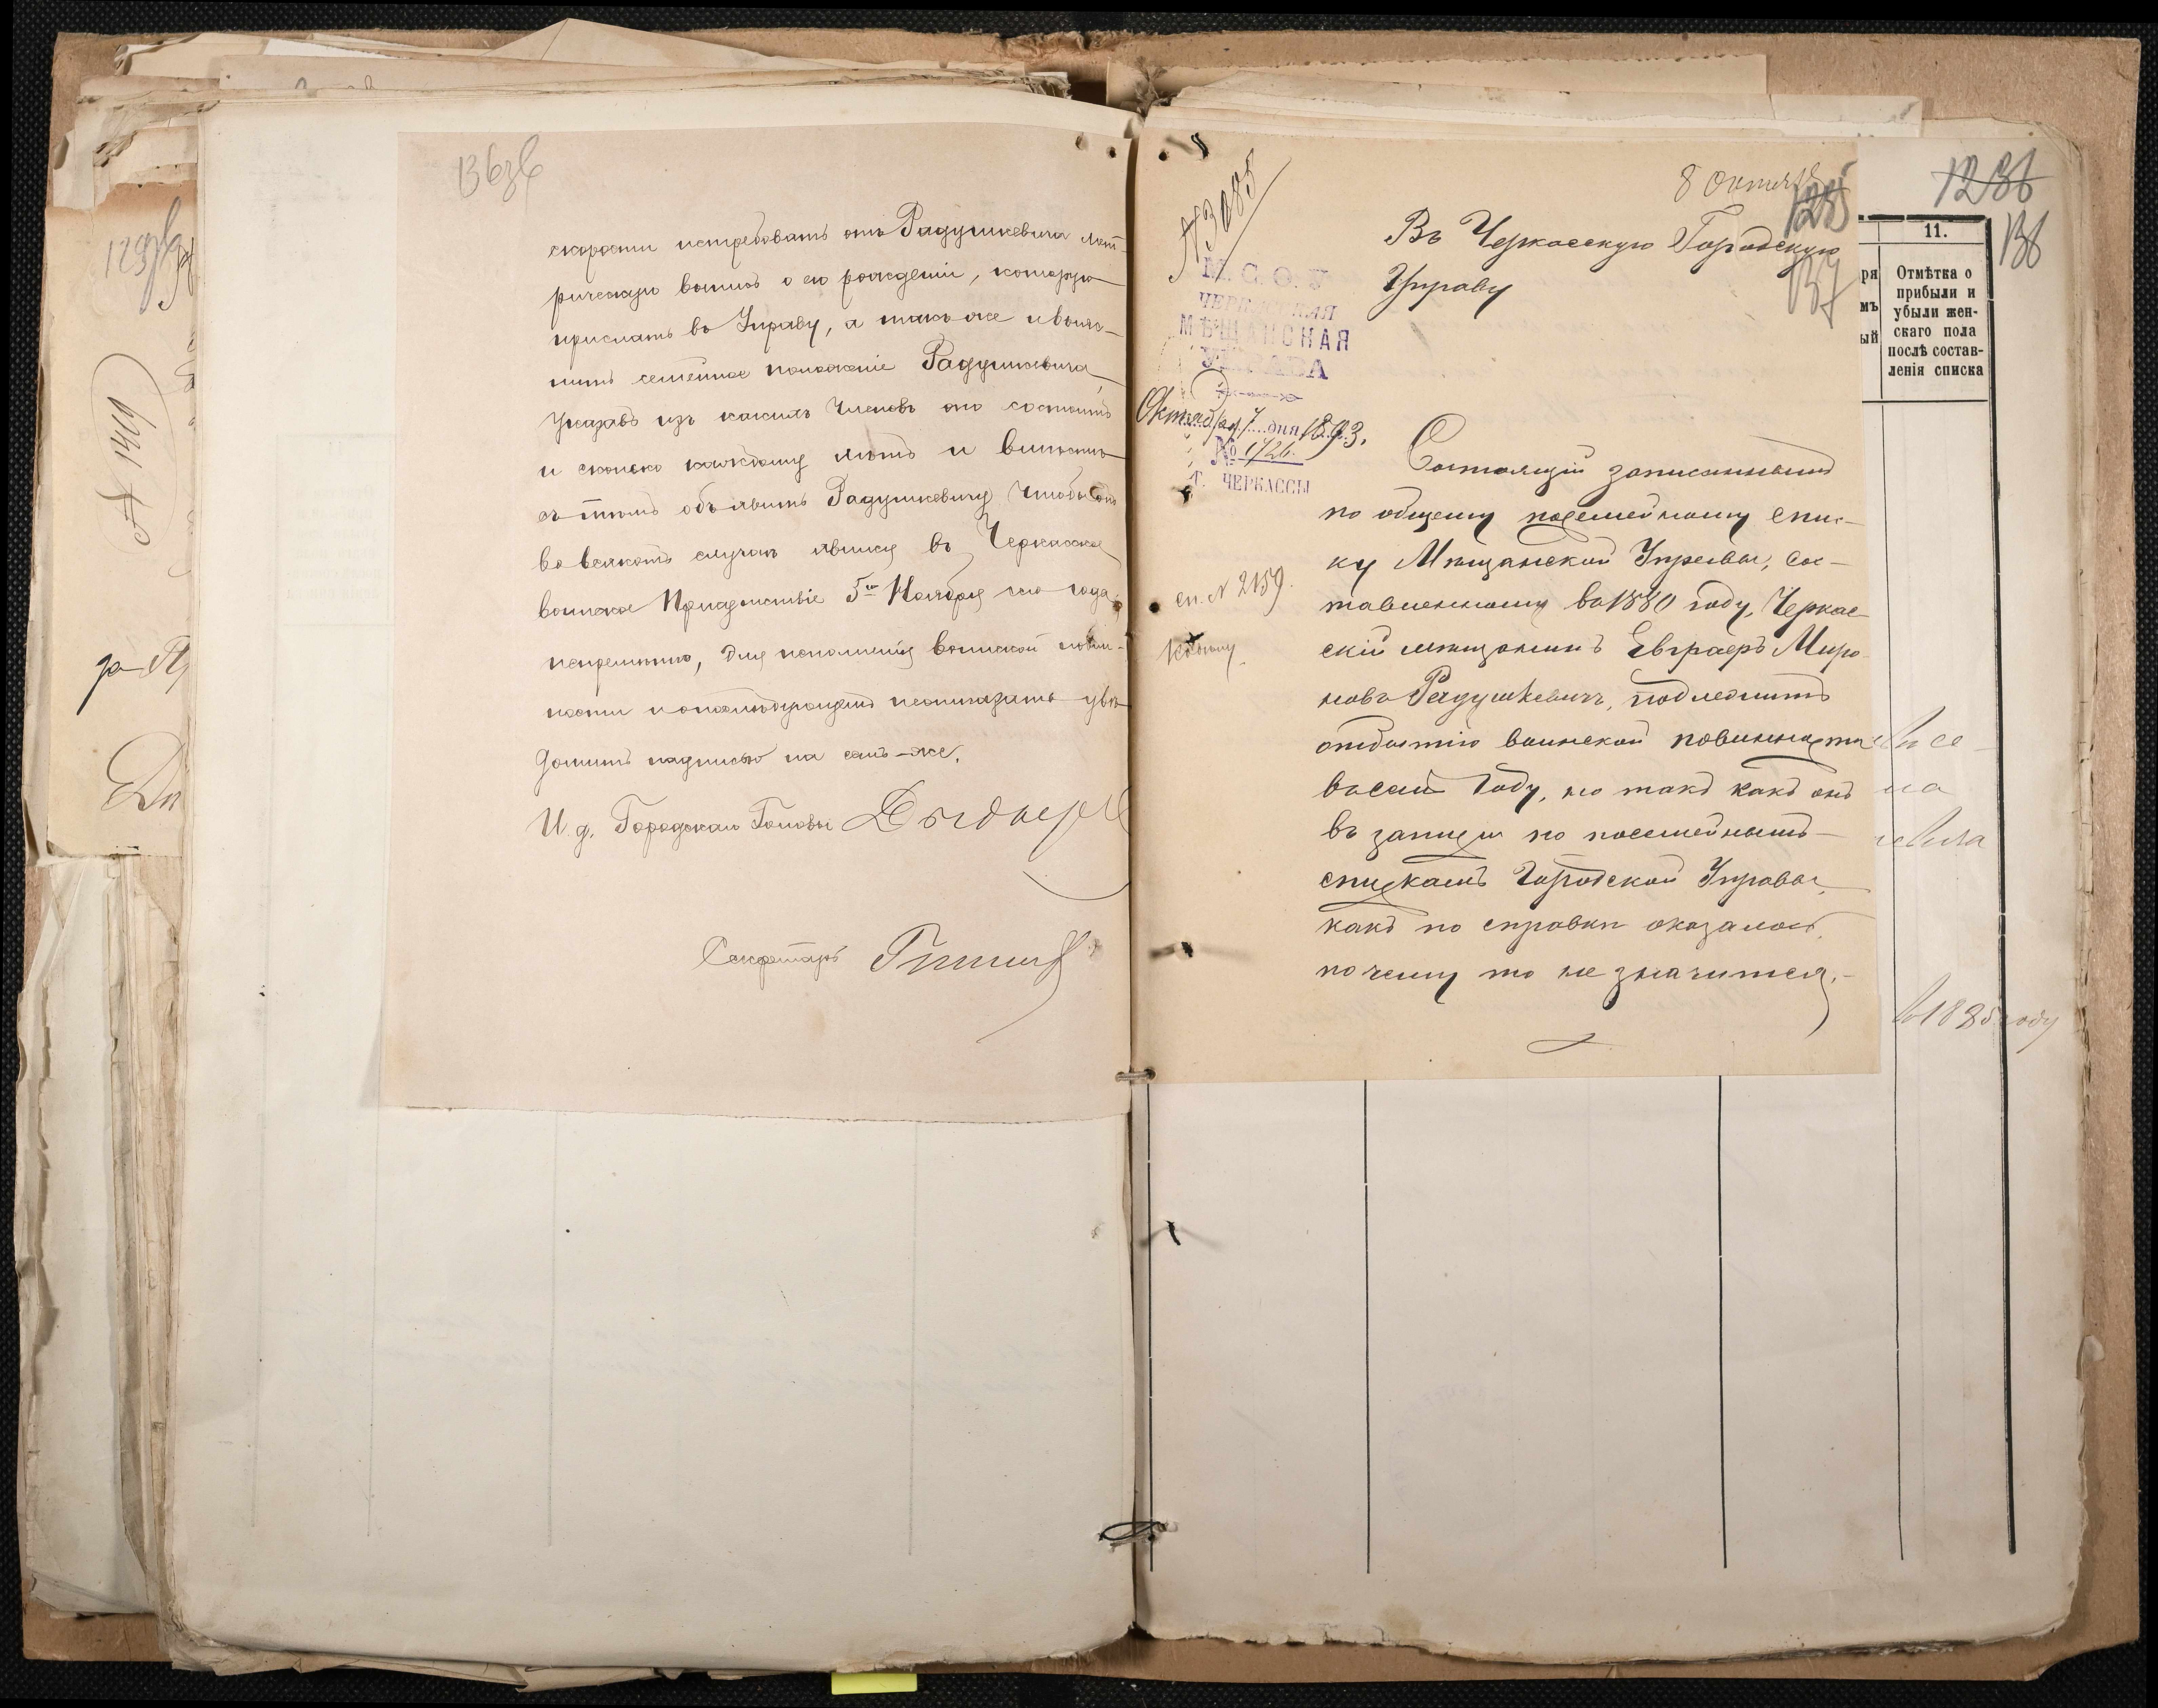 136зв
скорости истребовать отъ Радушкевича мет-
рическую выпись о его рожденіи, которую
прислать въ Управу, а также и выяс-
нить семейное положеніе Радушкевича,
указавъ изъ какихъ членовъ оно состоитъ
и сколько каждому лѣтъ и вмѣстѣ
съ тѣмъ объявить Радушкевичу чтобы онъ
во всякомъ случаѣ явился въ Черкасское
воинское Присутствіе 5го Ноября сего года
непремѣнно, для исполненія воинской повин-
ности и о послѣдующемъ не отказать увѣ-
домить надписью на семъ-же.
И. д. Городскаго Головы
Секретарь
№ 1419
№ 3085
8 Октября
1285
137
Въ Черкасскую Городскую
Управу
М. С. О. У
ЧЕРКАССКАЯ
МѢЩАНСКАЯ
УПРАВА
Октября 7 дня 1893.
№ 1726.
Г. ЧЕРКАССЫ
Состоящій записаннымъ
по общему посемейному спис-
ку Мѣщанской Управы, сос-
тавленному въ 1880 году, Черкас-
скій мѣщанинъ Евграфъ Миро-
новъ Радушкевичъ, подлежитъ
отбытію воинской повинности
въ семъ году, но такъ какъ онъ
въ записи по посемейнымъ
спискамъ Городской Управы,
какъ по справки оказалось,
почему то не значится,-
сп. № 2159.
1286
136
11.
Отмѣтка о
прибыли и
убыли жен-
скаго пола
послѣ состав-
ленія списка
ря
мъ
ый
на